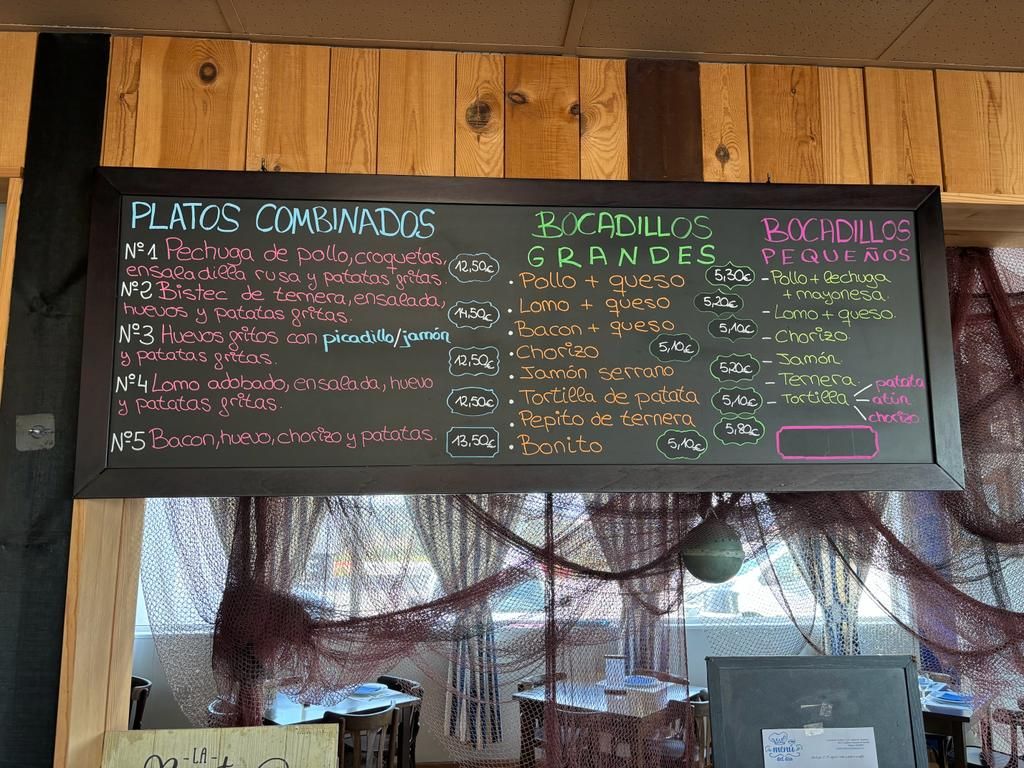 PLATOS COMBINADOS
Nº1 Pechuga de pollo, croquetas,
ensaladilla rusa y patatas gritas. 12,50€
Nº2 Bistec de ternera, ensalada,
huevos y patatas gritas. 14,50€
Nº3 Huevos gritos con picadillo/jamón
y patatas gritas. 12,50€
Nº4 Lomo adobado, ensalada, huevo
y patatas gritas. 12,50€
Nº5 Bacon, huevo, chorizo y patatas. 13,50€
BOCADILLOS
GRANDES
· Pollo + queso 5,30€
· Lomo + queso 5,20€
· Bacon + queso 5,10€
· Chorizo 5,10€
· Jamón serrano 5,20€
· Tortilla de patata 5,10€
· Pepito de ternera 5,80€
· Bonito 5,10€
BOCADILLOS
PEQUEÑOS
- Pollo + lechuga
+ mayonesa.
- Lomo + queso.
- Chorizo.
- Jamón.
- Ternera
- Tortilla
patata
atún
chorizo.
- LA -
menú
del día